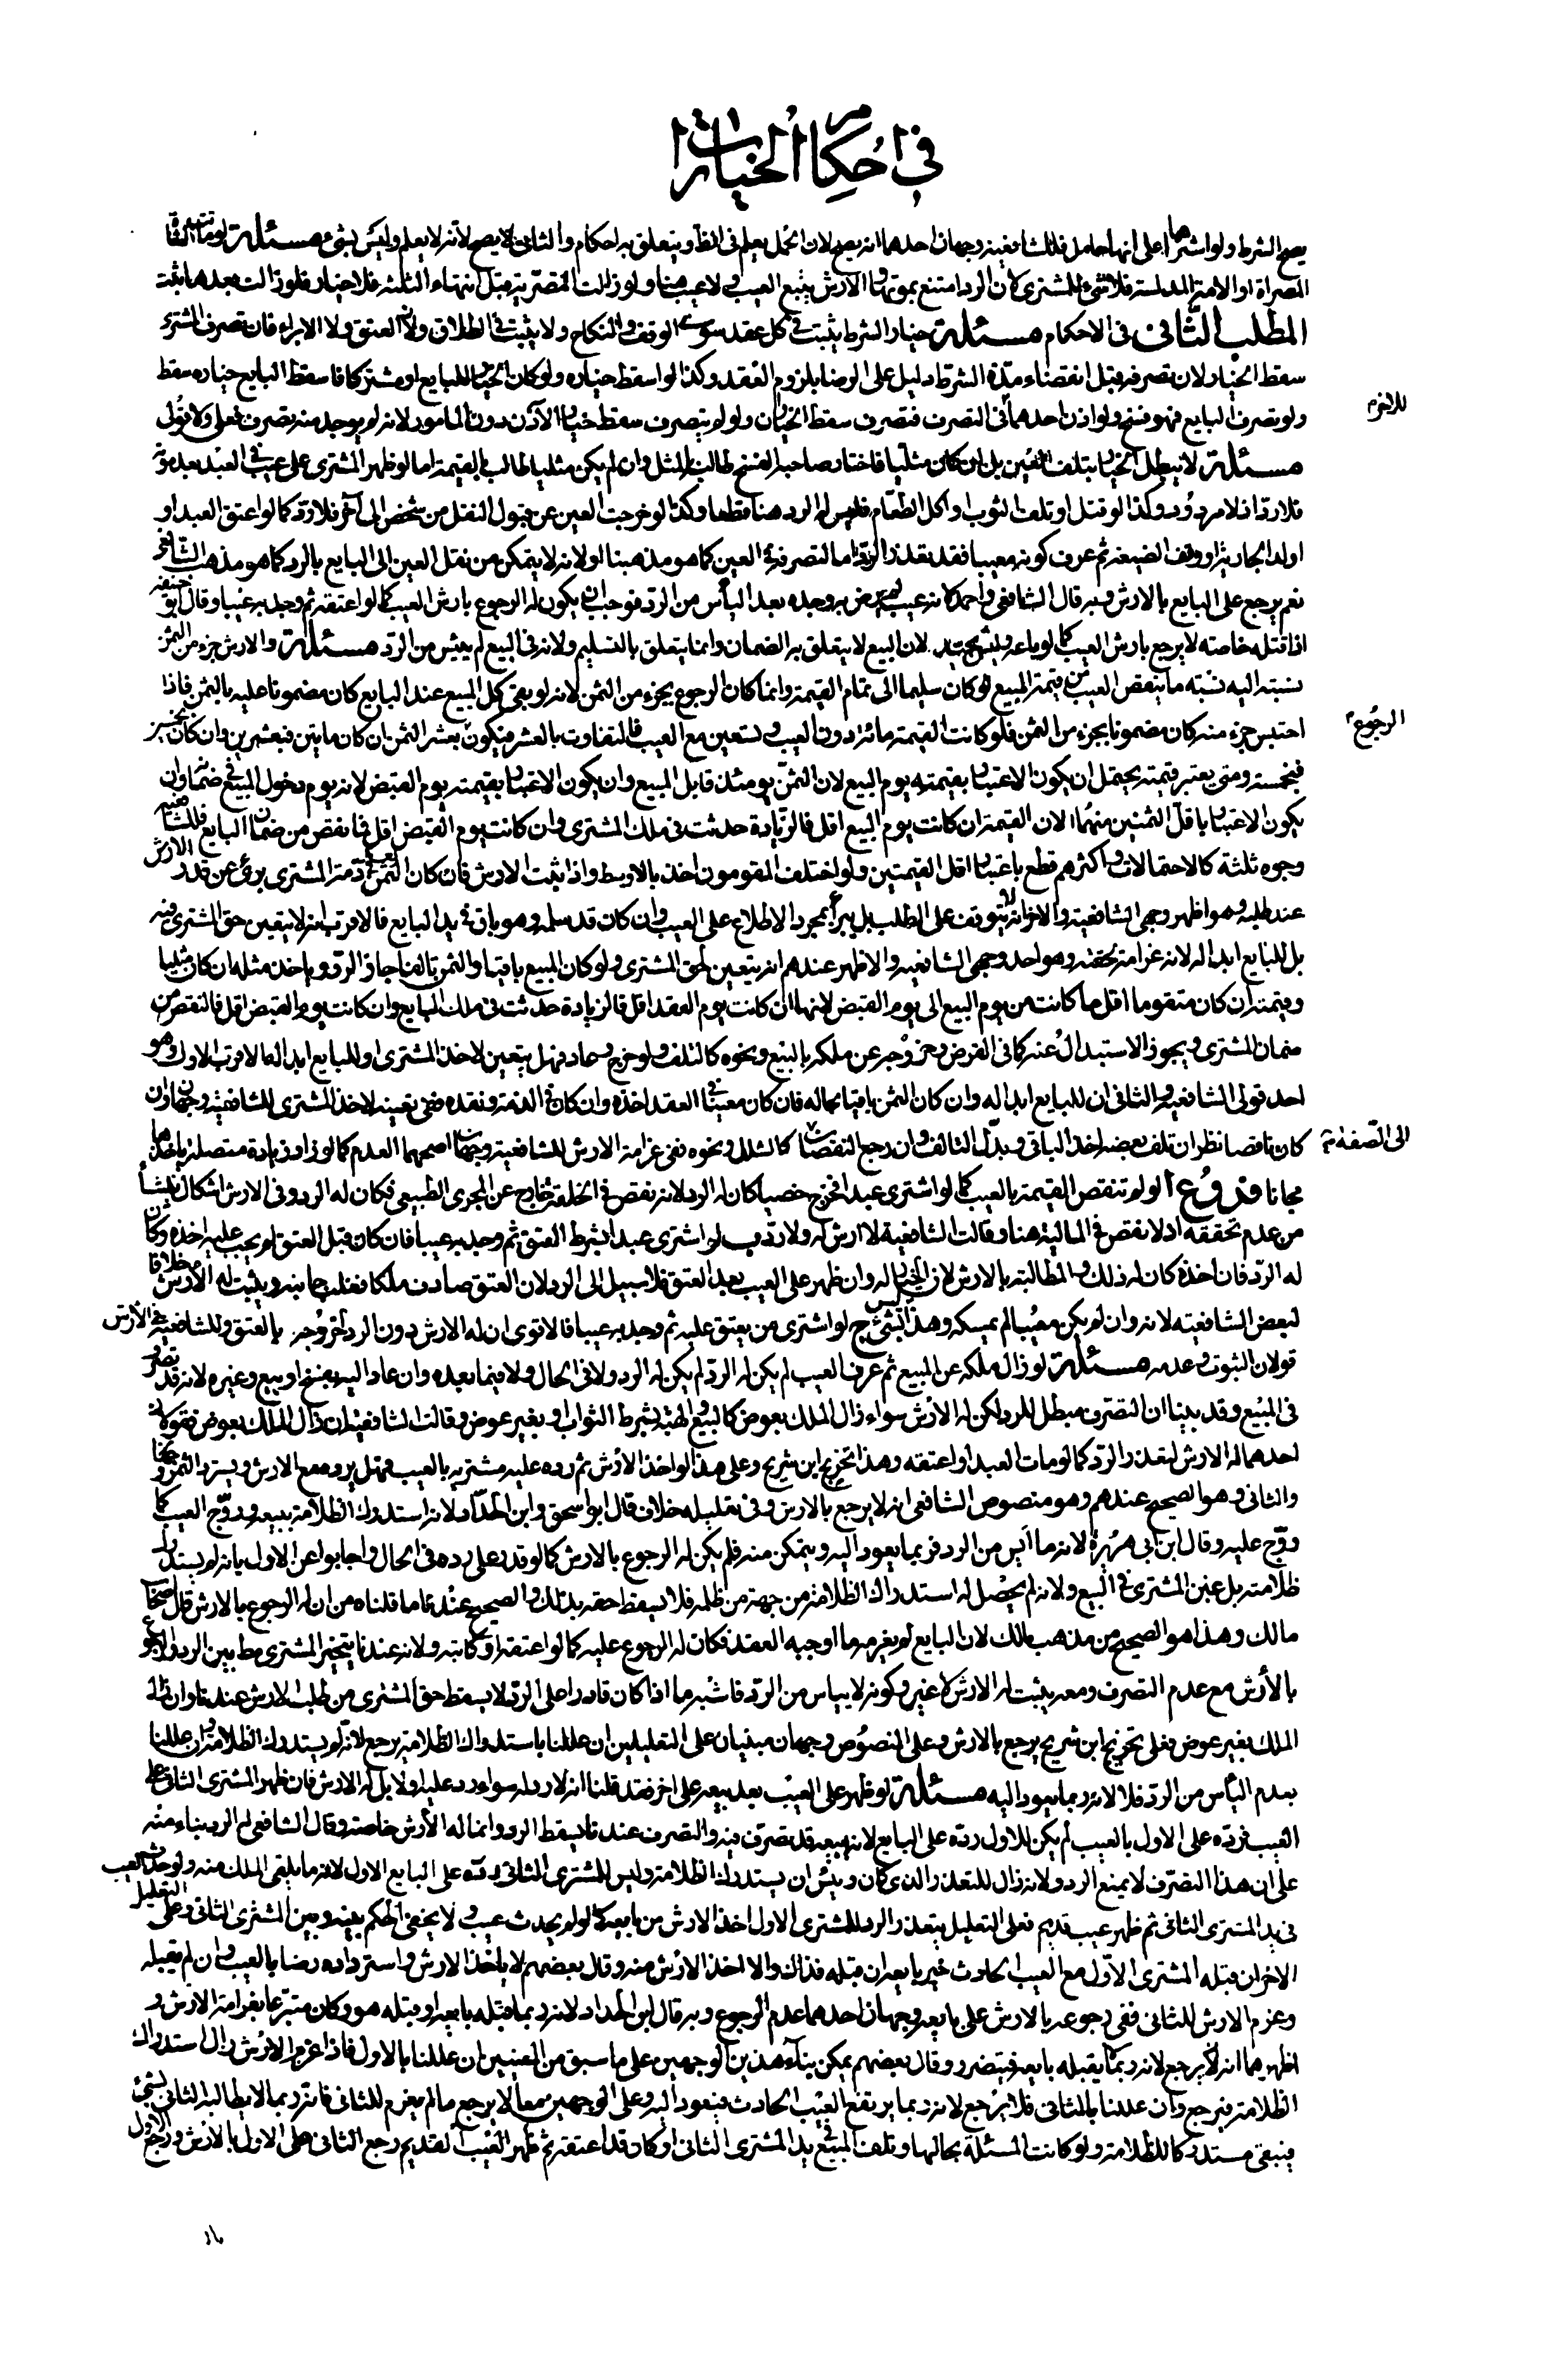 في احكام الخيارات
يصح الشرط ولو اشتراها على انها حامل فللشافعية وجهان احدهما انه يصح لان الحمل يعلم في الظاهر ويتعلق به احكام والثاني لا يصح لانه لا يعلم وليس بشيء مسئلة لو ماتت الشاة
المصراة او الامة المدلسة فلا شيء للمشتري لان الرد امتنع بموتها والارش يتبع العيب ولا عيب هنا ولو زالت التصرية قبل انقضاء الثلثة فلا خيار ولو زالت بعدها ثبت
المطلب الثاني في الاحكام مسئلة خيار الشرط يثبت في كل عقد سوى الوقف والنكاح ولا يثبت في الطلاق ولا العتق ولا الابراء فان تصرف المشتري
سقط الخيار لان تصرفه قبل انقضاء مدة الشرط دليل على الرضا بلزوم العقد وكذا لو اسقط خياره ولو كان الخيار للبايع او مشتركا فاسقط البايع خياره سقط
ولو تصرف البايع فهو فسخ ولو اذن احدهما في التصرف فتصرف سقط الخياران ولو لم يتصرف سقط خيار الآذن دون المامور لانه لم يوجد منه تصرف فعلى ولا قولى
للاخر م
مسئلة لا يبطل الخيار بتلف العين بل ان كان مثليا فاختار صاحبه الفسخ طالب بالمثل وان لم يكن مثليا طالب بالقيمة اما لو ظهر المشتري على عيب في العبد بعد موته
فلا رد اذ لا مردود وكذا لو قتل او تلف الثوب او اكل الطعام فليس له الرد هنا قطعا وكذا لو خرجت العين عن قبول النقل من شخص الى آخر فلا رد كما لو اعتق العبد او
اولد الجارية او وقف الضيعة ثم عرف كونه معيبا فقد تعذر الرد اما لتصرفه في العين كما هو مذهبنا او لانه لا يتمكن من نقل العين الى البايع بالرد كما هو مذهب الشافعي
نعم يرجع على البايع بالارش وبه قال الشافعي واحمد لانه عيب لم يرض به وجده بعد اليأس من الرد فوجب ان يكون له الرجوع بارش العيب كما لو اعتقه ثم وجد به عيبا وقال ابو حنيفة
اذا قتله خاصة لا يرجع بارش العيب كما لو باعه وليس بجيد لان البيع لا يتعلق به الضمان وانما يتعلق بالتسليم ولانه في البيع لم ييئس من الرد مسئلة والارش جزء من الثمن
نسبته اليه نسبة ما ينقص العيب من قيمة المبيع لو كان سليما الى تمام القيمة وانما كان الرجوع بجزء من الثمن لانه لو بقي كل المبيع عند البايع كان مضمونا عليه بالثمن فاذا
احتبس جزء منه كان مضمونا بجزء من الثمن فلو كانت القيمة مائة دون العيب وتسعين مع العيب فالتفاوت بالعشر فيكون بعشر الثمن ان كان مايتين فبعشرين وان كان خمسين
الرجوع م
فبخمسة ومتى يعتبر قيمته يحتمل ان يكون الاعتبار بقيمته يوم البيع لان الثمن يومئذ قابل المبيع وان يكون الاعتبار بقيمته يوم القبض لانه يوم دخول المبيع في ضمانه وان
يكون الاعتبار باقل الثمنين منهما لان القيمة ان كانت يوم البيع اقل فالزيادة حدثت في ملك المشتري وان كانت يوم القبض اقل فما نقص من ضمان البايع وللشافعية
وجوه ثلثة كالاحتمالات واكثرهم قطع باعتبار اقل القيمتين ولو اختلف المقومون اخذ بالاوسط واذا ثبت الارش فان كان الثمن بعد في ذمة المشتري برئ عن قدر الارش
عند طلبه وهو اظهر وجهي الشافعية والاخر انه لا يتوقف على الطلب بل يبرأ بمجرد الاطلاع على العيب وان كان قد سلمه وهو باق في يد البايع فالاقرب انه لا يتعين حق المشتري فيه
بل للبايع ابداله لانه غرامة لحقته وهو احد وجهي الشافعية والاظهر عندهم انه يتعين لحق المشتري ولو كان المبيع باقيا والثمن تالفا جاز الرد وياخذ مثله ان كان مثليا
وقيمته ان كان متقوما اقل ما كانت من يوم البيع الى يوم القبض لانها ان كانت يوم العقد اقل فالزيادة حدثت في ملك البايع وان كانت يوم القبض اقل فالنقص من
ضمان المشتري ويجوز الاستبدال عنه كما في القرض وخروجه عن ملكه بالبيع ونحوه كالتلف ولو خرج وعاد فهل يتعين لاخذ المشتري او للبايع ابداله الاقرب الاول وهو
احد قولى الشافعية والثاني ان للبايع ابداله وان كان الثمن باقيا بحاله فان كان معينا في العقد اخذه وان كان في الذمة ونقده ففي تعيينه لاخذ المشتري للشافعية وجهان وان
كان ناقصا نظر ان تلف بعضه اخذ الباقي وبدل التالف وان رجع النقصان كالشلل ونحوه ففي غرامة الارش للشافعية وجهان اصحهما العدم كما لو زاد زيادة متصلة ياخذها
الى الصفة م
مجانا فروع ا لو لم تنقص القيمة بالعيب كما لو اشترى عبدا فخرج خصيا كان له الرد لانه نقص في الخلقة خارج عن المجرى الطبيعي فكان له الرد وفي الارش اشكال ينشأ
من عدم تحققه اذ لا نقص في المالية هنا وقالت الشافعية لا ارش له ولا رد ب لو اشترى عبدا بشرط العتق ثم وجد به عيبا فان كان قبل العتق لم يجب عليه اخذه وكان
له الرد فان اخذه كان له ذلك والمطالبة بالارش لان الخيار له وان ظهر على العيب بعد العتق فلا سبيل الى الرد لان العتق صادف ملكا فغلب جانبه ويثبت له الارش خلافا
لبعض الشافعية لانه وان لم يكن معيبا لم يمسكه وهذا ليس بشيء ج لو اشترى من يعتق عليه ثم وجد به عيبا فالاقوى ان له الارش دون الرد لخروجه بالعتق وللشافعية في الارش
قولان الثبوت وعدمه مسئلة لو زال ملكه عن المبيع ثم عرف العيب لم يكن له الرد لم يكن له الرد ولا في الحال ولا فيما بعده وان عاد اليه بفسخ او بيع وغيره لانه قد تصرف
في المبيع وقد بينا ان التصرف مبطل للرد لكن له الارش سواء زال الملك بعوض كالبيع والهبة بشرط الثواب او بغير عوض وقالت الشافعية ان زال الملك بعوض فقولان
احدهما له الارش لتعذر الرد كما لو مات العبد او اعتقه وهذا تخريج ابن شريح وعلى هذا لو اخذ الارش ثم رده عليه مشتريه بالعيب فهل يرده مع الارش ويسترد الثمن وجهان
والثاني وهو الصحيح عندهم وهو منصوص الشافعي انه لا يرجع بالارش وفي تعليله خلاف قال ابو اسحق وابن الحداد لانه استدرك الظلامة ببيعه وروج العيب كما
روج عليه وقال ابن ابي هريرة لانه ما ايس من الرد فربما يعود اليه ويتمكن منه فلم يكن له الرجوع بالارش كما لو قدر على رده في الحال واجابوا عن الاول بانه لم يستدرك
ظلامته بل غبن المشتري في البيع ولانه لم يحصل له استدراك الظلامة من جهة من ظلمه فلا يسقط حقه بذلك والصحيح عندنا ما قلناه من ان له الرجوع بالارش قال اصحاب
مالك وهذا هو الصحيح من مذهب مالك لان البايع لم يغرمه ما اوجبه العقد فكان له الرجوع عليه كما لو اعتقه او كاتبه ولانه عندنا يتخير المشتري مط بين الرد والرجوع
بالارش مع عدم التصرف ومعه يثبت له الارش لا غير وكونه لا ييأس من الرد فاشبه ما اذا كان قادرا على الرد لا يسقط حق المشتري من طلب الارش عندنا وان زال
الملك بغير عوض فعلى تخريج ابن شريح يرجع بالارش وعلى المنصوص وجهان مبنيان على التعليلين ان عللنا باستدراك الظلامة يرجع لانه لم يستدرك الظلامة وان عللنا
بعدم اليأس من الرد فلا لانه ربما يعود اليه مسئلة لو ظهر على العيب بعد بيعه على اخر فقد قلنا انه لا رد له سواء رد عليه او لا بل له الارش فان ظهر المشتري الثاني على
العيب فرده على الاول بالعيب لم يكن للاول رده على البايع لانه ببيعه قد تصرف فيه والتصرف عندنا يسقط الرد وانما له الارش خاصة وقال الشافعي له الرد بناء منه
على ان هذا التصرف لا يمنع الرد ولانه زال للتعذر الذي كان وبين ان يستدرك الظلامة وليس للمشتري الثاني رده على البايع الاول لانه ما تلقى الملك منه ولو حدث العيب
في يد المشتري الثاني ثم ظهر عيب قديم فعلى التعليل بتعذر الرد للمشتري الاول اخذ الارش من بايعه كما لو لم يحدث عيب ولا يخفى الحكم بينه وبين المشتري الثاني وعلى التعليل
الاخر ان قبله المشتري الاول مع العيب الحادث خير بايعه ان قبله فذاك والا اخذ الارش منه وقال بعضهم لا ياخذ الارش واسترداده رضا بالعيب وان لم يقبله
وغرم الارش للثاني ففي رجوعه بالارش على بايعه وجهان احدهما عدم الرجوع وبه قال ابن الحداد لانه ربما قبله بايعه لو قبله هو وكان متبرعا بغرامة الارش و
اظهرهما انه يرجع لانه ربما لا يقبله بايعه فيتضرر وقال بعضهم يمكن بناء هذين الوجهين على ما سبق من المعنيين ان عللنا بالاول فاذا غرم الارش زال استدراك
الظلامة فيرجع وان عللنا بالثاني فلا يرجع لانه ربما يرتفع العيب الحادث فيعود اليه وعلى الوجهين معا لا يرجع ما لم يغرم للثاني فانه ربما لا يطالبه الثاني بشيء
فيبقى مستدركا للظلامة ولو كانت المسئلة بحالها وتلف المبيع في يد المشتري الثاني او كان قد اعتقه ثم ظهر العيب القديم رجع الثاني على الاول بالارش ورجع الاول